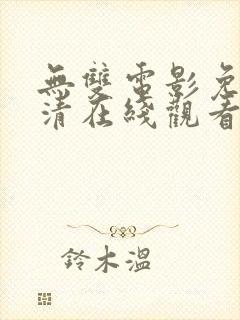 無雙電影免
清在綫觀看
鈴木溫